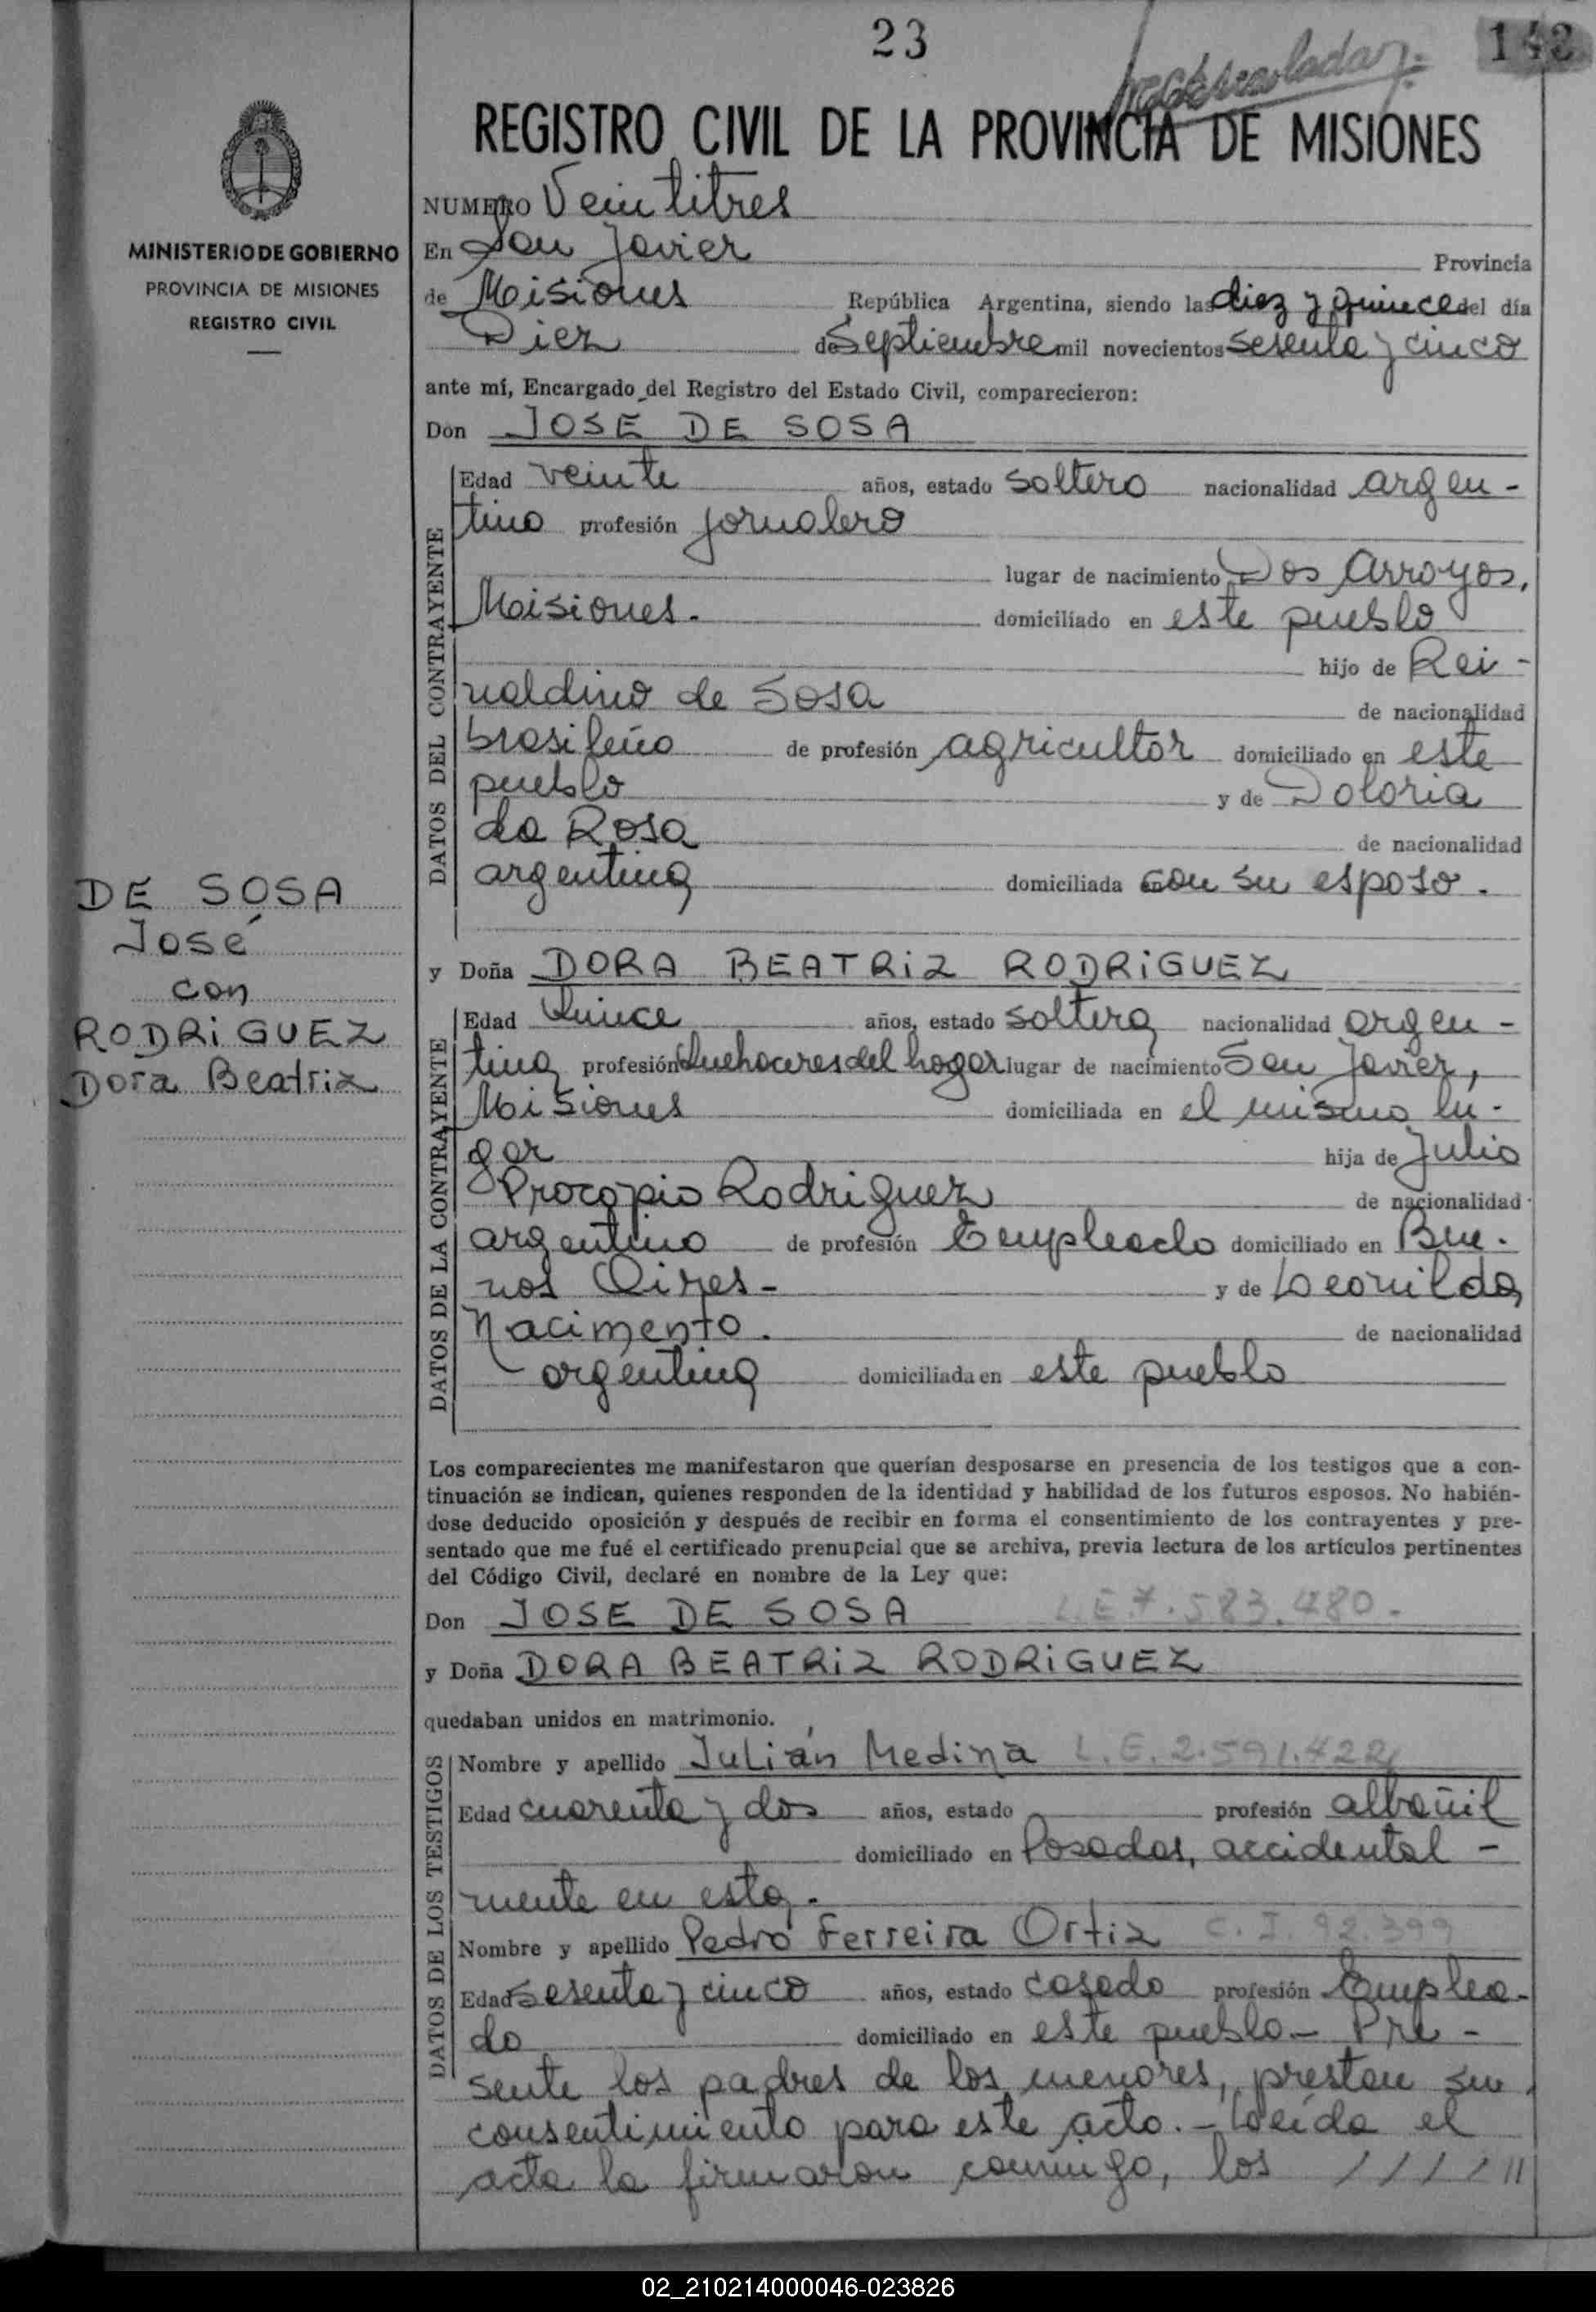 23
142
REGISTRO CIVIL DE LA PROVINCIA DE MISIONES
MINISTERIO DE GOBIERNO
PROVINCIA DE MISIONES
REGISTRO CIVIL
NUMERO Veintitres
En San Javier Provincia
de Misiones República Argentina, siendo las diez y quince del día
Diez de Septiembre mil novecientos sesenta y cinco
ante mí, Encargado del Registro del Estado Civil, comparecieron:
Don JOSE DE SOSA
DATOS DEL CONTRAYENTE
Edad veinte años, estado soltero nacionalidad argen-
tino profesión jornalero
lugar de nacimiento Dos Arroyos,
Misiones. domiciliado en este pueblo
hijo de Rei-
naldino de Sosa de nacionalidad
brasileño de profesión agricultor domiciliado en este
pueblo y de Doloria
da Rosa de nacionalidad
argentina domiciliada con su esposo.
DE SOSA
José
con
RODRiGUEZ
Dora Beatriz
y Doña DORA BEATRiZ RODRiGUEZ
DATOS DE LA CONTRAYENTE
Edad Quince años, estado soltera nacionalidad argen-
tina profesión Quehaceres del hogar lugar de nacimiento San Javier,
Misiones domiciliada en el mismo lu-
gar hija de Julio
Procopio Rodriguez de nacionalidad
argentino de profesión Empleado domiciliado en Bue-
nos Aires- y de Leonilda
Nacimento. de nacionalidad
argentina domiciliada en este pueblo
Los comparecientes me manifestaron que querían desposarse en presencia de los testigos que a con-
tinuación se indican, quienes responden de la identidad y habilidad de los futuros esposos. No habién-
dose deducido oposición y después de recibir en forma el consentimiento de los contrayentes y pre-
sentado que me fué el certificado prenupcial que se archiva, previa lectura de los artículos pertinentes
del Código Civil, declaré en nombre de la Ley que:
Don JOSE DE SOSA L.E. 7.583.480-
y Doña DORA BEATRiZ RODRiGUEZ
quedaban unidos en matrimonio.
DATOS DE LOS TESTIGOS
Nombre y apellido Julián Medina L.E. 2.591.422
Edad cuarenta y dos años, estado profesión albañil
domiciliado en Posadas, accidental-
mente en esta.
Nombre y apellido Pedro Ferreira Ortiz C.I. 92.399
Edad sesenta y cinco años, estado casado profesión Emplea-
do domiciliado en este pueblo.- Pre-
sente los padres de los menores, prestan su
consentimiento para este acto.- Leída el
acta la firmaron conmigo, los //////
02_210214000046-023826